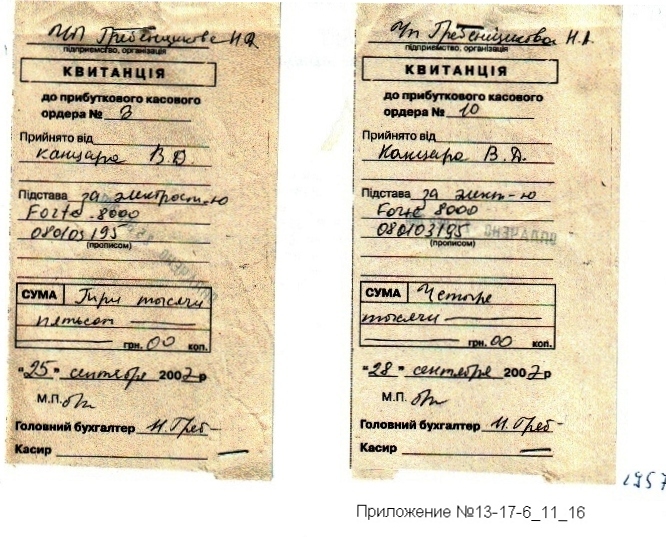 ЧП Гребенщикова Н.А
підприємство, організація
КВИТАНЦІЯ
до прибуткового касового
ордера № 3
Прийнято від
Канцара В.Д.
Підстава за электрост-ю
Forte 8000
080103195
(прописом)
СУМА Три тысячи
пятьсот
грн. 00 коп.
"25" сентября 2007 р
М.П.
Головний бухгалтер Н.Греб-
Касир
ЧП Гребенщикова Н.А.
підприємство, організація
КВИТАНЦІЯ
до прибуткового касового
ордера № 10
Прийнято від
Канцара В.Д.
Підстава за элект-ю
Forte 8000
080103195
ОПЛАЧЕНО
(прописом)
СУМА Четыре
тысячи
грн. 00 коп.
"28" сентября 2007 р
М.П.
Головний бухгалтер Н.Греб-
Касир
1957
Приложение №13-17-6_11_16